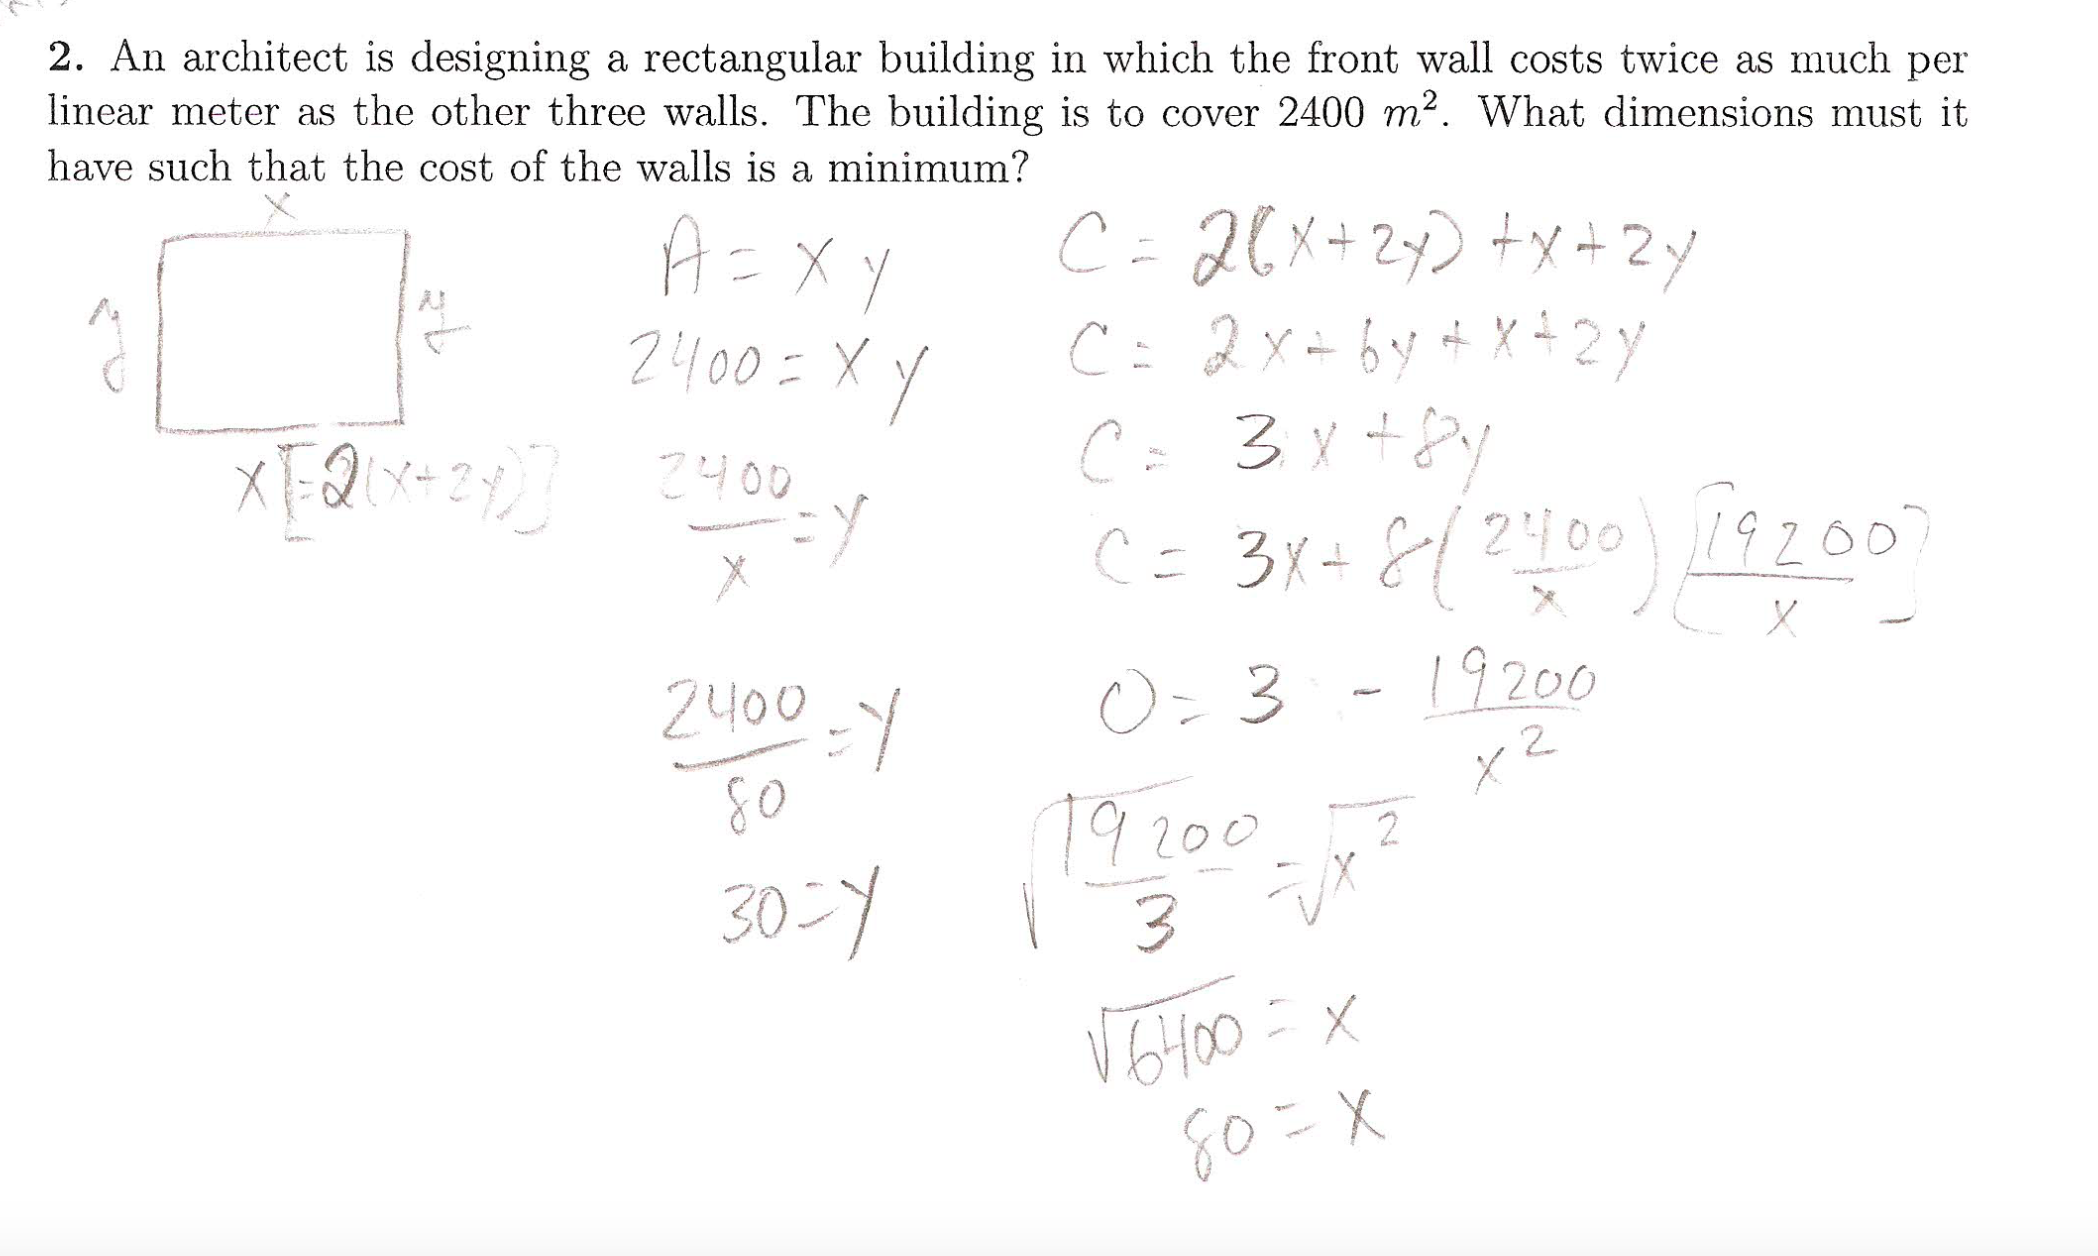 2. An architect is designing a rectangular building in which the front wall costs twice as much per
linear meter as the other three walls. The building is to cover 2400 m². What dimensions must it
have such that the cost of the walls is a minimum?
x
y
y
x [=2(x+2y)]
A = x y
2400 = x y
2400/x = y
2400/80 = y
30 = y
C = 2(x+2y) + x + 2y
C = 2x + 6y + x + 2y
C = 3x + 8y
C = 3x + 8(2400/x) [19200/x]
0 = 3 - 19200/x²
√19200/3 = √x²
√6400 = x
80 = x